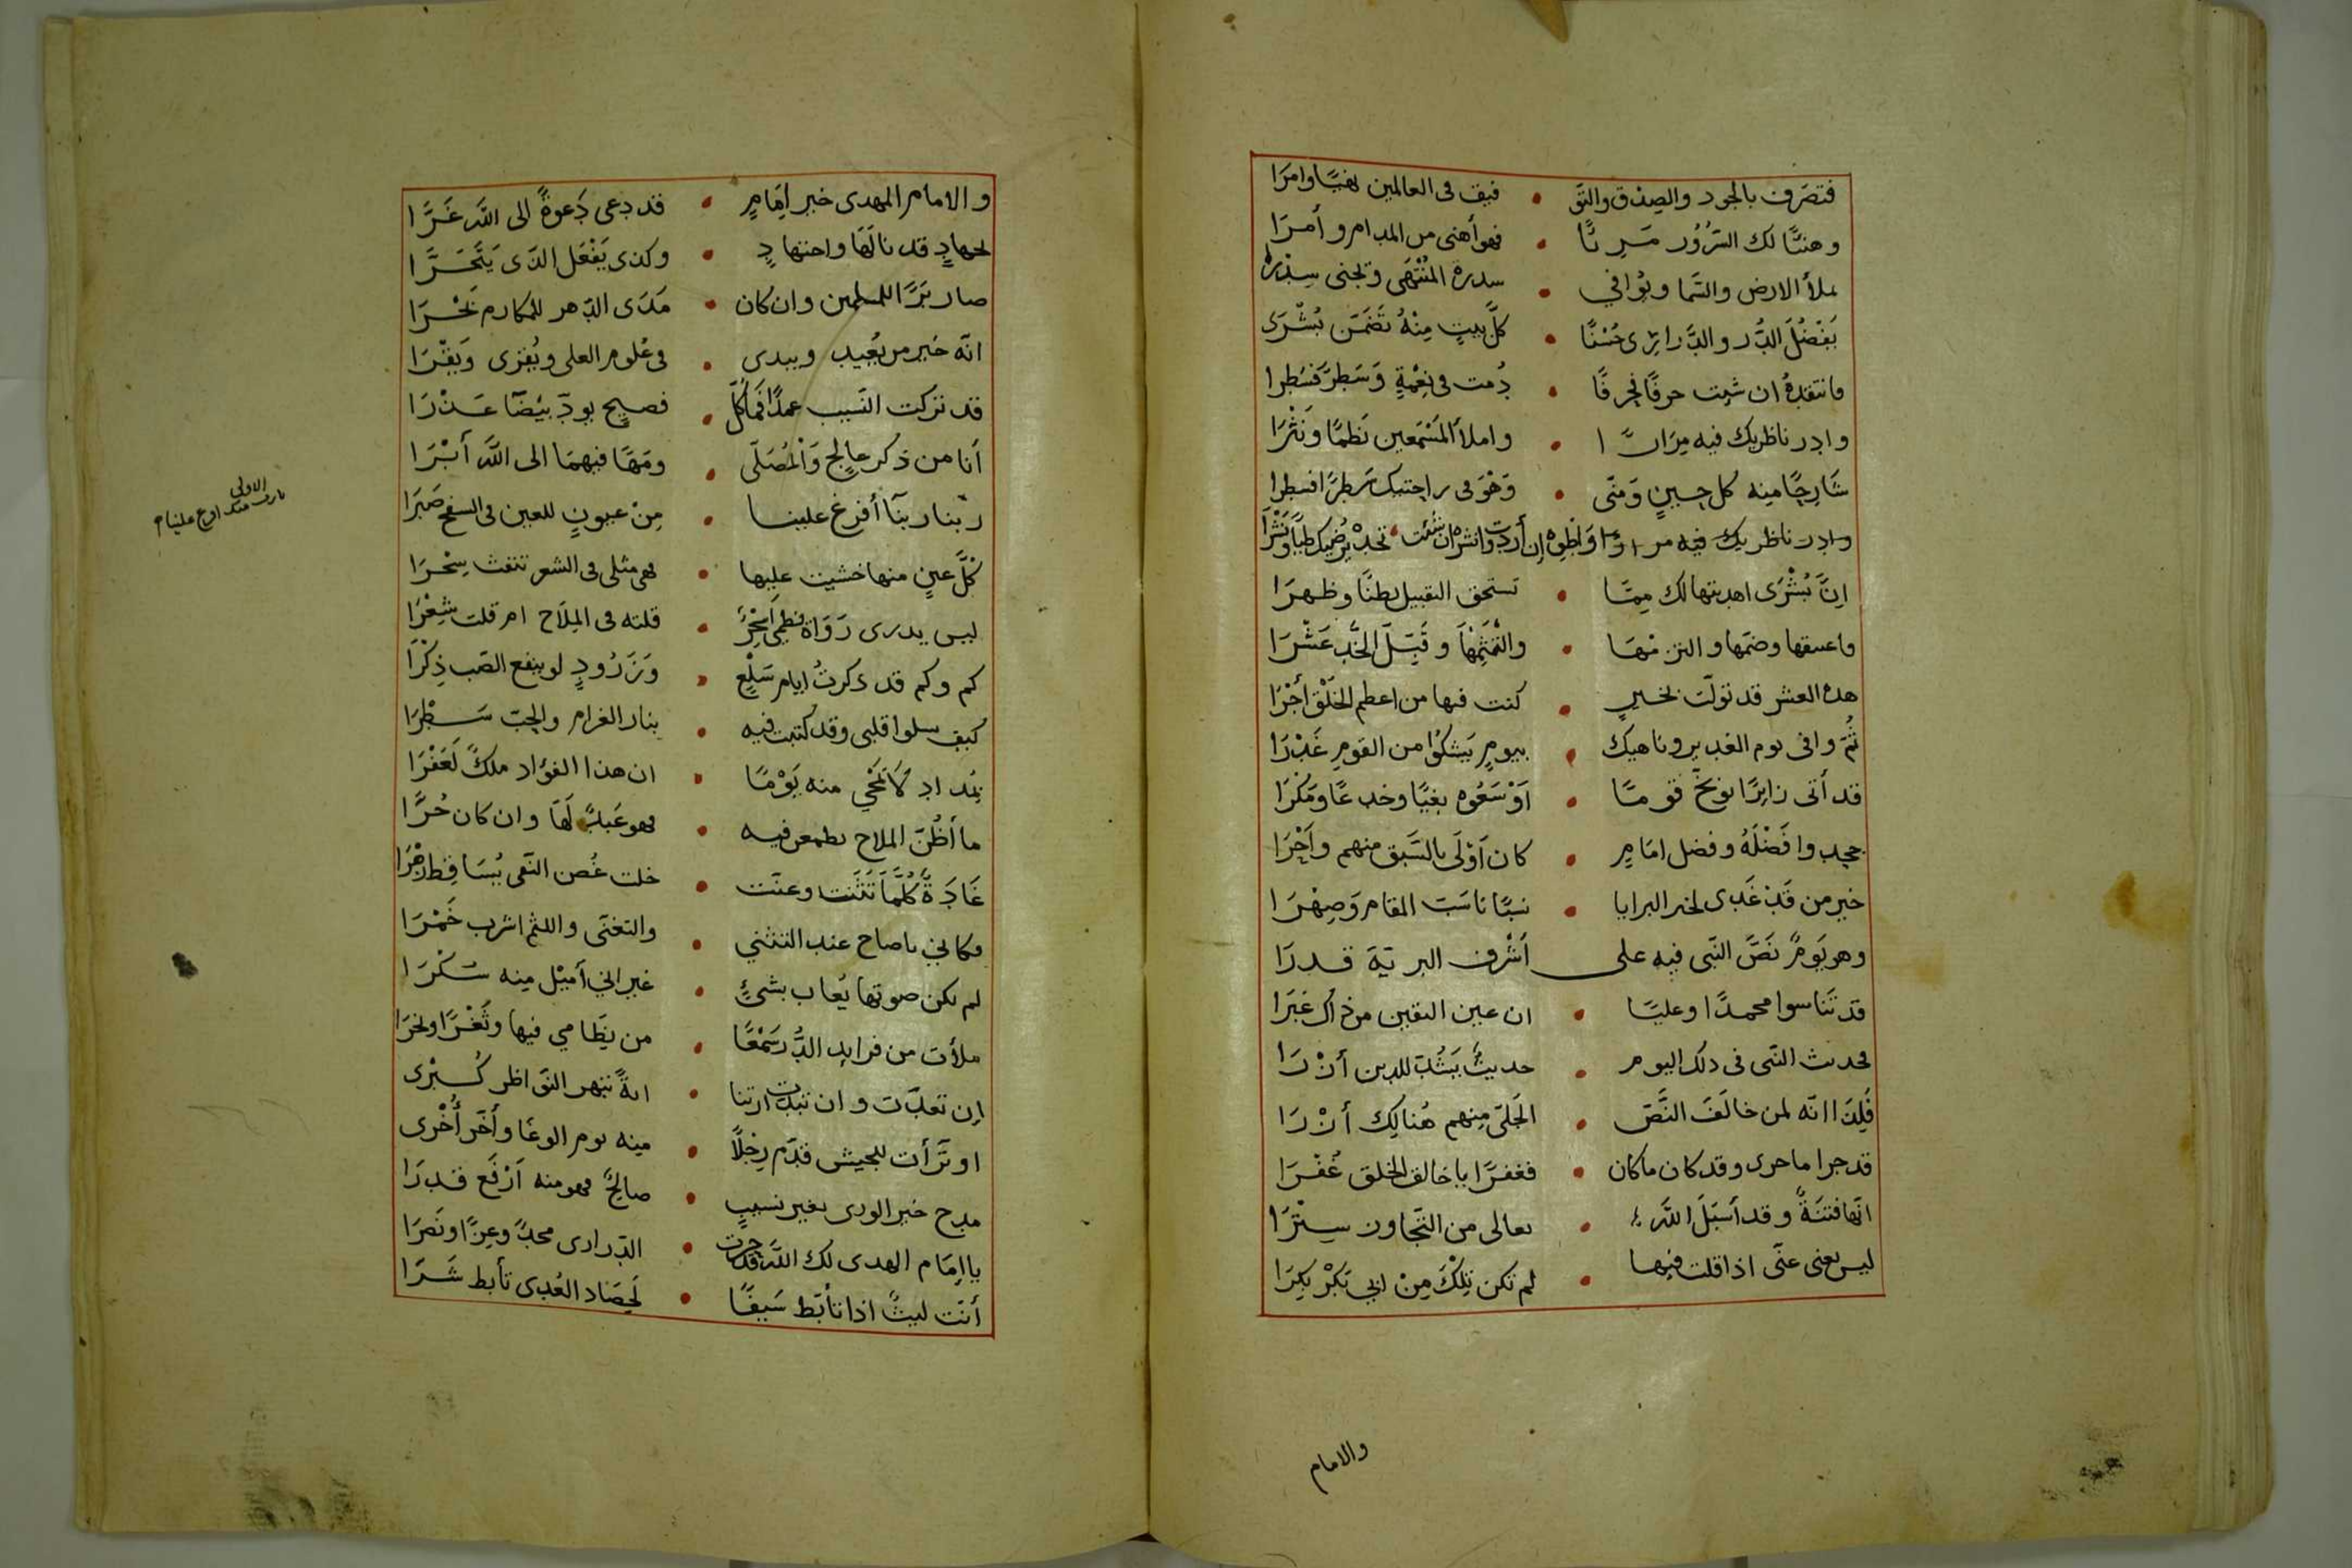 فتصَرف بالجود والصِدق والتقَ • فيق فى العالمين نهيًا وامرَا
وهنيًّا لك السّرُور مَرِيًّا • فهو أهنى من المدام وأمرَا
ملأ الارض والسّما ويُوافي • سدرة المُنْتَهى وتجنى سِدْرة
يَفْضُلَ الدُّر والدَّرارِي حُسْنًا • كلَّ بيتٍ مِنْهُ تضَمّن بُشْرَى
فانتقدهُ ان شِيت حرفًا فحرفًا • دُمت فى نِعْمَةٍ وَسَطرًا فسَطرا
وادِر ناظريك فيه مِرَارًا • واملأ المَسْمَعين نَظمًا ونَثْرَا
شَارِحًا مِنه كل حِينٍ وَمتَى • وَهْوَ فى راحتيك سَطرًا فسطرا
وادر ناظريك فيه مرارا وَاطوِه إن أردت وانشره ان شئت • تجدْ يُرضيك طيًّا ونَشْرَا
اِنَّ بُشْرَى اهديتها لك مِمَّا • تستحق التقبيل بطنًا وظهرَا
فاعنقها وضمّها والتزمْهَا • والْتَثِمْهَا وقَبِّلَ الخَدّ عَشْرَا
هذه العشر قد تولّت بخيرٍ • كنت فيها من اعظم الخَلْق أجْرَا
ثُمّ وافى يوم الغدير وناهيك • بيومٍ يَشكُوا من القومِ غَدْرَا
قد أتى زايرًا يوبّخ قومًا • اَوْسَعُوه بغيًا وخدعًا ومَكْرَا
جحدوا فَضْلَهُ وفضل امَامٍ • كان اَوْلَى بالسَّبق منهم وأحْرَا
خير من قَدْ غَدى لخير البرايا • نسبًا ناسَبَ المقام وَصِهْرَا
وهو يَومٌ نَصَّ النّبى فيه على أشرف البريّة قدرَا
قد تَناسوا محمدًا وعليًّا • ان عين اليقين من ذاك غَبْرَا
فحديث النّبى فى ذلك اليوم • حديثٌ يَشُدّ للدين أزْرَا
فَلِذَا انّه لمن خالَفَ النَّصّ • الجَلىّ مِنهم هُنالِك أزْرَا
قد جرا ما جرى وقد كان ما كان • فغفرًا يا خالق الخلق غُفْرَا
انّها فتنَةٌ وقد أسْبَلَ اللّه • تعالى من التّجاوز سِتْرَا
ليس يغنى عنّى اذا قلت فيها • لم تكن تِلْكَ مِنْ ابى بَكْرٍ بِكرَا
والامام
والامام المهدى خير اِمَامٍ • قد دعى دَعوةً الى اللّه غَرَّا
لجهادٍ قد نالَهَا واجتهادٍ • وكذى يَفْعَل الذى يَتَحَرَّا
صار بَرًّا للمسلمين وان كان • مَدَى الدّهر للمكارم بَحْرَا
انّه خير من يُعيد ويبدى • فى عُلوم العلى ويُقرى وَيَقْرَا
قد تركت النّسيب عمدًا فما كلّ • فصيحٍ يودّ بيْضَا عَذْرَا
أنا من ذكر عالِج وَالمُصَلّى • ومَهًا فيهمَا الى اللّه أبْرَا
ربّنا ربنا أفرغ علينا • مِنْ عيونٍ للعين فى السفح صَبْرَا
كلّ عينٍ منها خشيت عليها • فهى مثلى فى الشعر تنفث سِحْرَا
ليس يدرى رَوَاة نظمى أسِحْرٌ • قلته فى المِلَاح ام قلت شِعْرَا
كم وكم قد ذكرتُ ايام سَلْعٍ • وَزَرُودٍ لو ينفع الصّب ذِكْرَا
كيف سلوا قلبى وقد كُتبت فيه • بنار الغرام والحبّ سَطْرَا
بمداد لَا تمّحي منه يَوْمًا • ان هذا الفؤاد ملكٌ لعَفْرَا
ما أظُنّ الملاح يطمعن فيه • فهو عَبدٌ لهَا وان كان حُرًّا
غَادَةٌ كلّمَا تَثَنت وغنّت • خلت غُصن النّقى يُسَاقِط زَهْرَا
فكاني ياصاح عند التثني • والتغنّى واللثم اشرب خَمْرَا
لم يكن صوتها يُعاب بشئٍ • غير انّي أميْل مِنه سُكْرَا
ملأت من فرايد الدُّر سَمْعًا • من نِظَامي فيها وثَغْرًا ونحْرَا
اِن تغنّت وان تبدّت ارتنا • ايةً تبهر النّواظر كُبْرى
او ترَأت للجيش قدّم رِجْلًا • مِنه يوم الوغَا وأخّر أُخْرى
مدح خير الورى بغير نسيبٍ • صالحٌ فهو منه اَرْفَع قدرَا
يا اِمَام الهدى لك اللّه قد حرت • الدّرارى مجدًا وعِزًّا ونَصرَا
أنتَ ليثٌ اذا تأبّط سَيفًا • لِحِصَاد العُدى تأبط شَرّا
الاولى